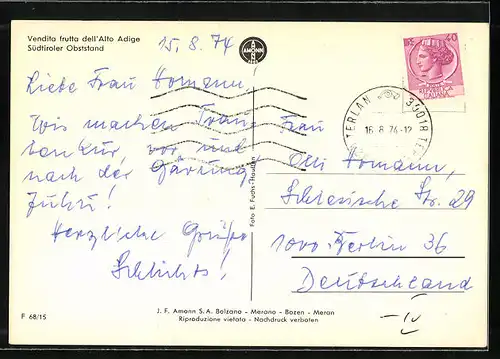 Vendita frutta dell'Alto Adige
Südtiroler Obststand
15.8.74
AMONN
Liebe Frau Homann!
Wir machen Trau-
benkur, vor und
nach der Gärung
Führt!
Herzliche Grüße
Schlichts!
40
TERLAN 39018
16-8 74-12
Frau
Homann,
Schlesische Str. 29
1000 Berlin 36
Deutschland
-IV
Foto E. Fuchs-Hauffen
J. F. Amonn S.A. Bolzano - Merano - Bozen - Meran
Riproduzione vietata - Nachdruck verboten
F 68/15